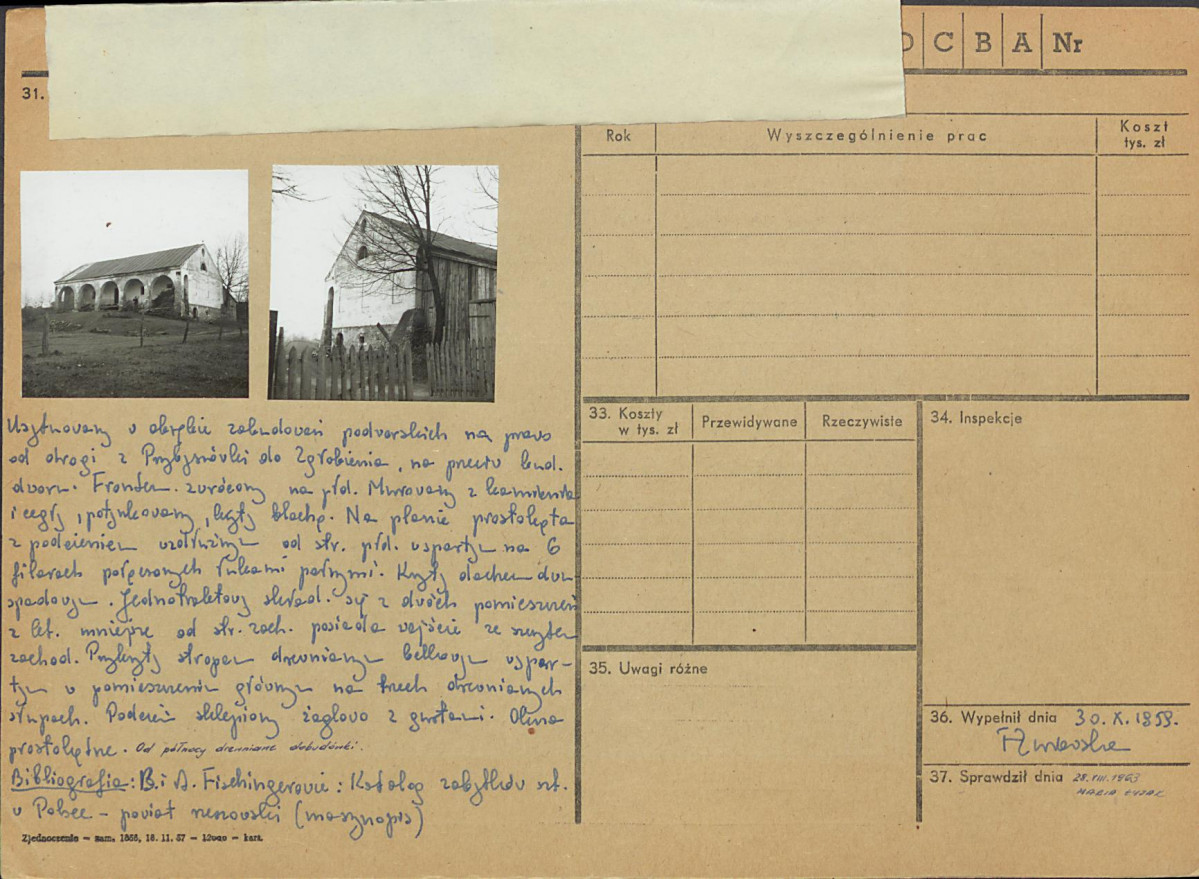 O C B A Nr
31.
Rok
Wyszczególnienie prac
Koszt
tys. zł
Usytuowany w obrębie zabudowań podworskich na prawo
od drogi z Przybyszówki do Zgłobienia, na przeciw bud.
dworu. Frontem zwrócony na płd. Murowany z kamienia
i cegły, potynkowany, kryty blachą. Na planie prostokąta
z podcieniem wzdłużnym od str. płd. wspartym na 6
filarach połączonych łukami pełnymi. Kryty dachem dwu
spadowym. Jednotraktowy sklad. się z dwóch pomieszczeń
z kt. mniejsze od str. zach. posiada wejście ze szczytu
zachod. Przykryty stropem drewnianym belkowym wspar-
tym w pomieszczeniu głównym na trzech drewnianych
słupach. Podcień sklepiony żaglowo z gurtami. Okna
prostokątne. Od północy drewniane dobudówki.
Bibliografia: B. i A. Fischingerowie: Katalog zabytków szt.
w Polsce - powiat rzeszowski (maszynopis)
Zjednoczenie — zam. 1868, 18. 11. 57 — — kart.
33. Koszty
w tys. zł
Przewidywane
Rzeczywiste
34. Inspekcje
35. Uwagi różne
36. Wypełnił dnia 30. X. 1959.
37. Sprawdził dnia 28.VIII.1963
MARIA